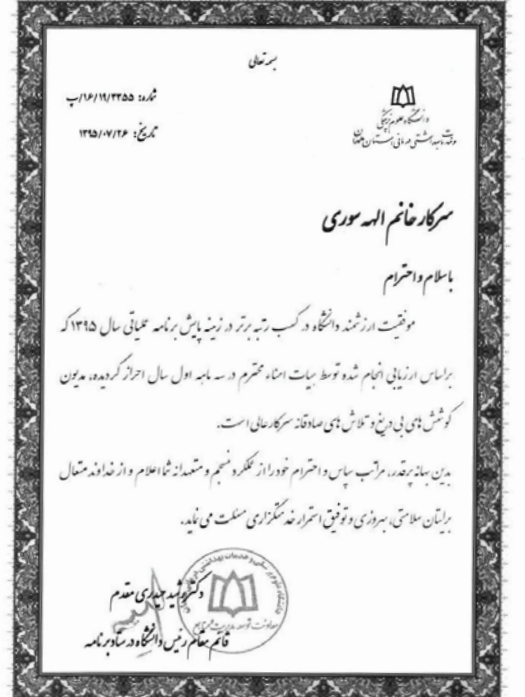 بسمه تعالی
شماره: ۱۶/۱۹/۳۳۵۵/پ
تاریخ: ۱۳۹۵/۰۷/۲۶
دانشگاه علوم پزشکی
و خدمات بهداشتی درمانی استان همدان
سرکار خانم الهه سوری
باسلام و احترام
موفقیت ارزشمند دانشگاه در کسب رتبه برتر در زمینه پایش برنامه عملیاتی سال ۱۳۹۵ که
براساس ارزیابی انجام شده توسط هیات امناء محترم در سه ماهه اول سال احراز گردیده، مدیون
کوشش های بی دریغ و تلاش های صادقانه سرکارعالی است.
بدین بهانه پرقدر، مراتب سپاس و احترام خود را از عملکرد منسجم و متعهدانه شما اعلام و از خداوند متعال
برایتان سلامتی، بهروزی و توفیق استمرار خدمتگزاری مسئلت می نماید.
دکتر رشید حیدری مقدم
قائم مقام رئیس دانشگاه در ستاد برنامه
معاونت توسعه مدیریت و منابع